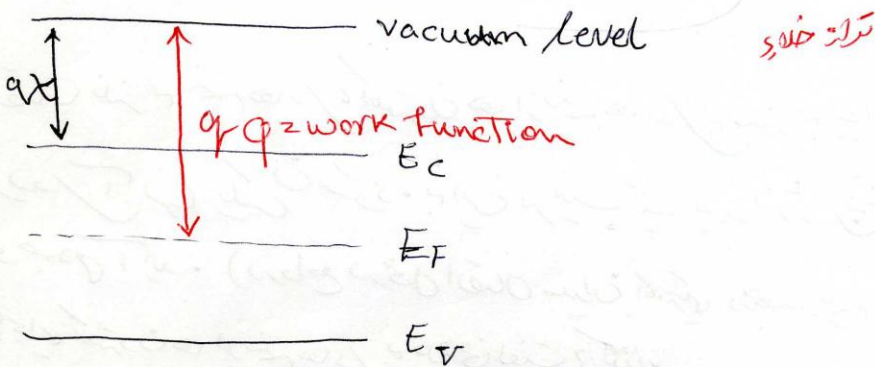 vacuum level
تراز خلاء
qχ
qφ = work function
E_C
E_F
E_V